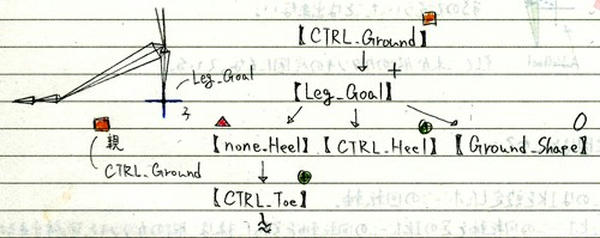 【CTRL_Ground】
Leg_Goal
【Leg_Goal】
【none_Heel】 【CTRL_Heel】 【Ground_Shape】
親
CTRL_Ground
【CTRL_Toe】